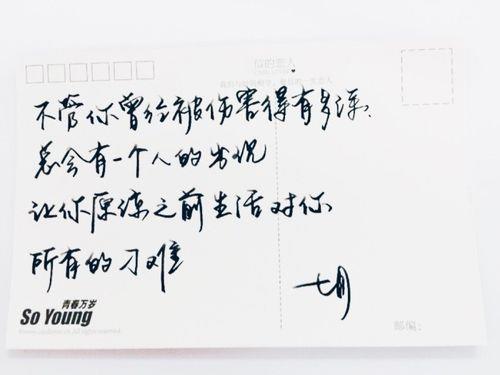 位的恋人
不管你曾经被伤害得有多深、
总会有一个人的出现
让你原谅之前生活对你
所有的刁难
七月
青春万岁
So Young
邮编: